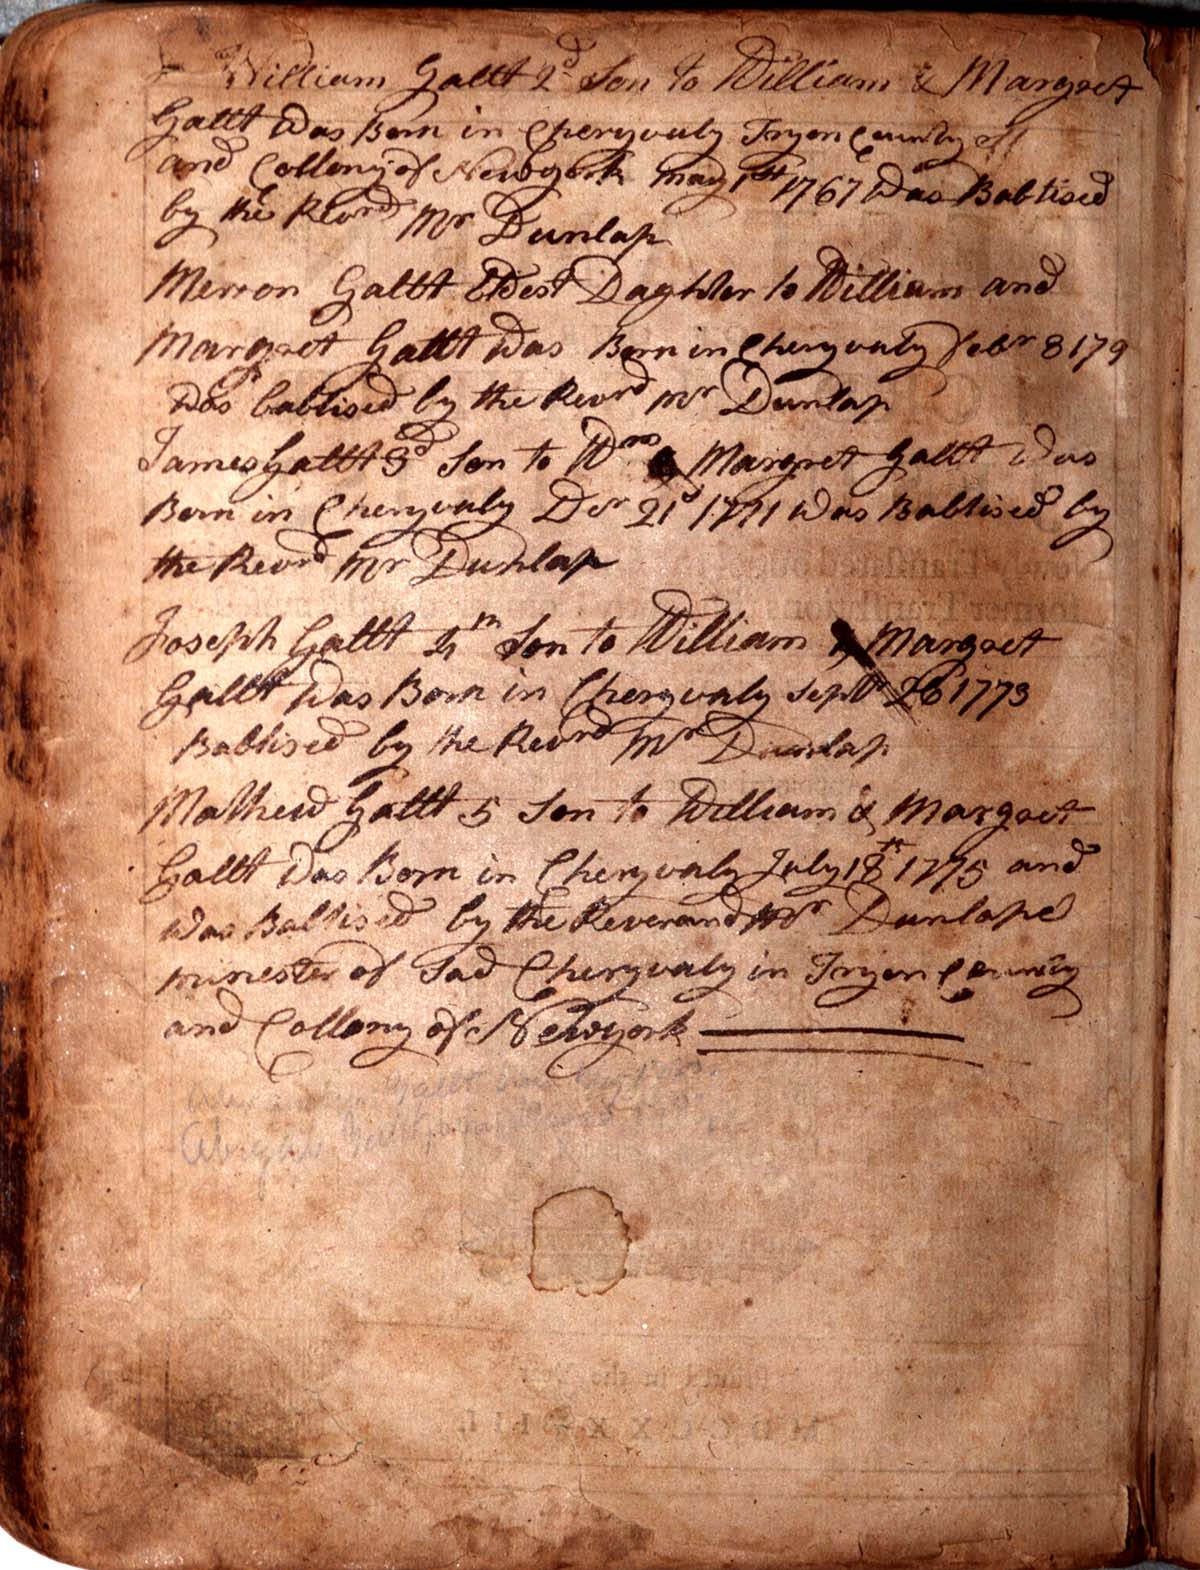 William Galtt 2d Son to William & Margret
Galtt Was Born in Cheryvaly Tryon County
and Collony of Newyork may 1st 1767 Was Babtised
by the Revrd Mr Dunlap
Merron Galtt Eldest Daghter to William and
Margret Galtt Was Born in Cheryvaly febr 8 179
Was babtised by the Revrd Mr Dunlap
James Galtt 3d Son to Wm & Margret Galtt Was
Born in Cheryvaly Dcr 21d 1771 Was Babtised by
the Revrd Mr Dunlap
Joseph Galtt 4th Son to William & Margret
Galtt Was Born in Cheryvaly Septbr 26 1773
Babtised by the Revrd Mr Dunlap
Mathew Galtt 5 Son to William & Margret
Galtt Was Born in Cheryvaly July 18th 1775 and
Was Babtised by the Reverand Mr Dunlape
minester of Sad Cheryvaly in Tryon County
and Collony of Newyork
Galtt
Abigal